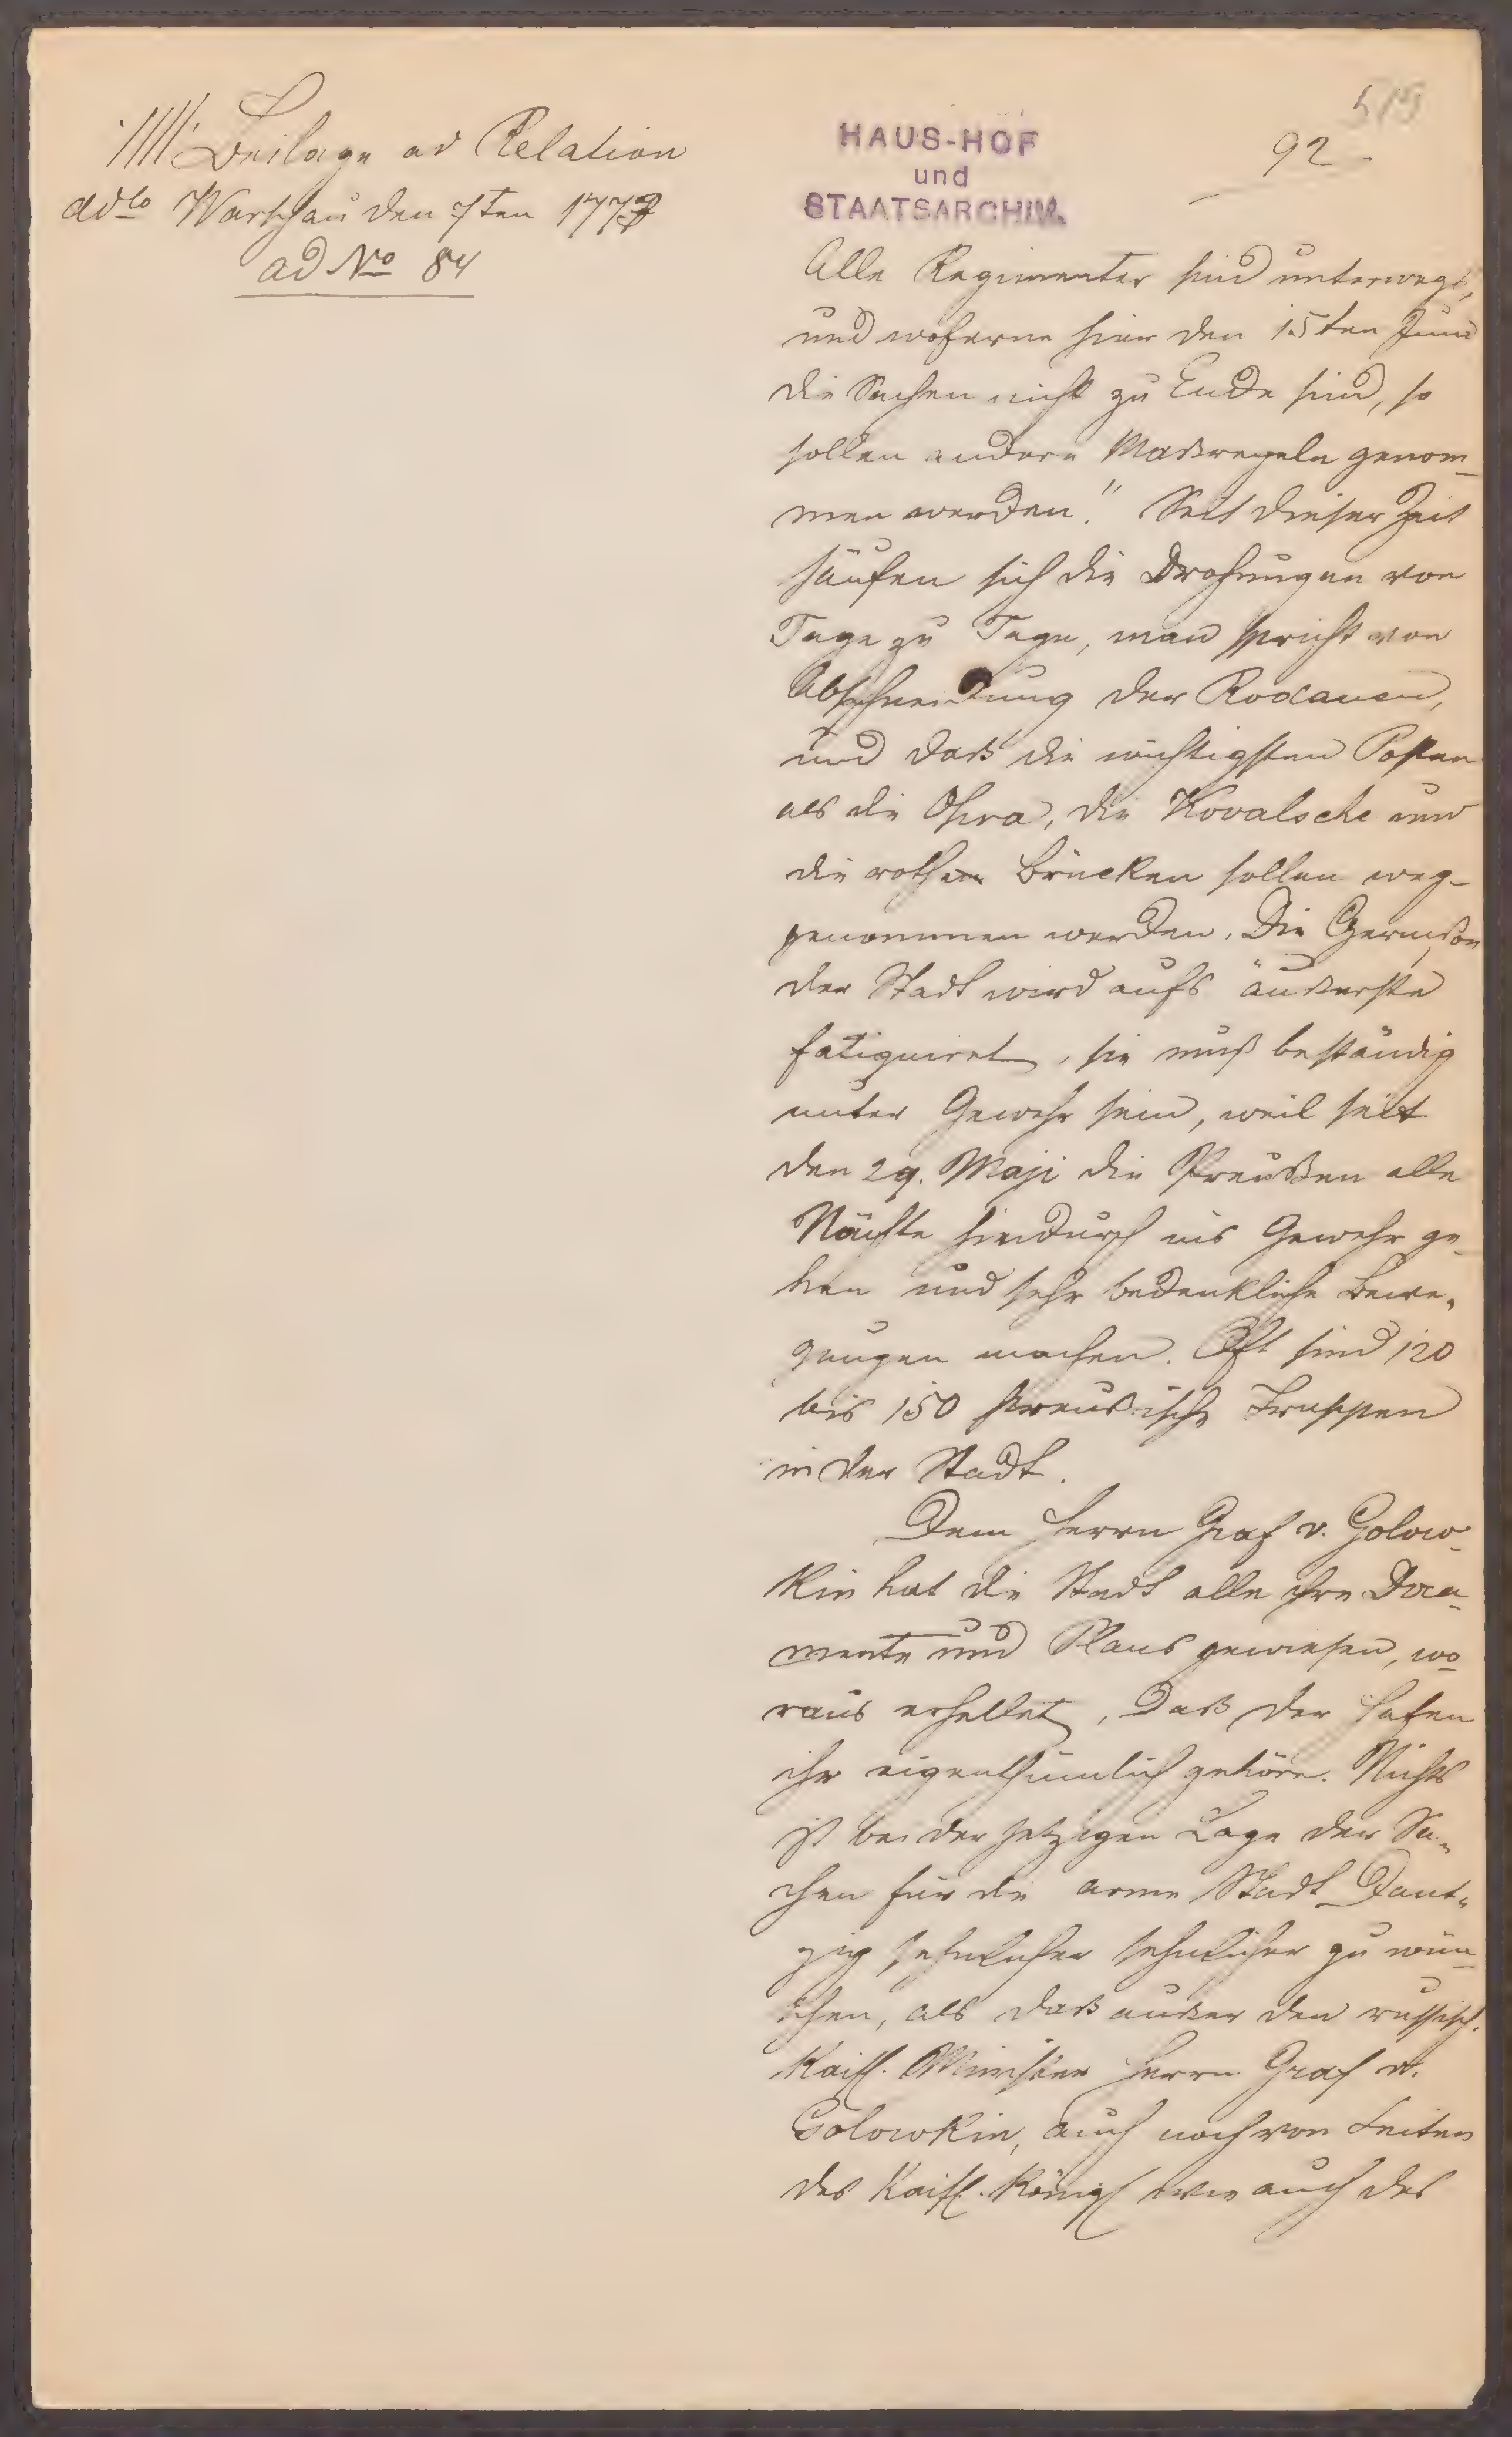 Beilage ad Relation
ddto Warschau den 7ten 1773
ad No 84
HAUS-HOF
und
STAATSARCHIV.
92
Alle Regimenter sind unterwegs,
und woferne hier den 15ten Juni
die Sachen nicht zu Ende sind, so
sollen andere Maßregeln genom-
men werden." Seit dieser Zeit
häufen sich die Drohungen von
Tage zu Tage, man spricht von
Abschneidung der Rodauen,
und daß die wichtigsten Posten
als die Ohra, die Kovalsche und
die rothen Brücken sollen weg-
genommen werden. Die Garnison
der Stadt wird aufs äußerste
fatiguiret, sie muß beständig
unter Gewehr sein, weil seit
den 29. Maji die Preußen alle
Nächte hindurch ins Gewehr ge-
hen und sehr bedenkliche Bewe-
gungen machen. Oft sind 120
bis 150 preußische Truppen
in der Stadt.
Dem Herrn Graf v. Golow-
kin hat die Stadt alle ihre Docu-
mente und Plans gewiesen, wo-
raus erhellet, daß der Hafen
ihr eigenthümlich gehöre. Nichts
ist bei der jetzigen Lage der Sa-
chen für die arme Stadt Dant-
zig sehnlicher sehnlicher zu wün-
schen, als daß außer den russisch.
Kaisl. Minister Herrn Graf v.
Golowkin, auch noch von Seiten
des Kaisl. Königl wie auch des